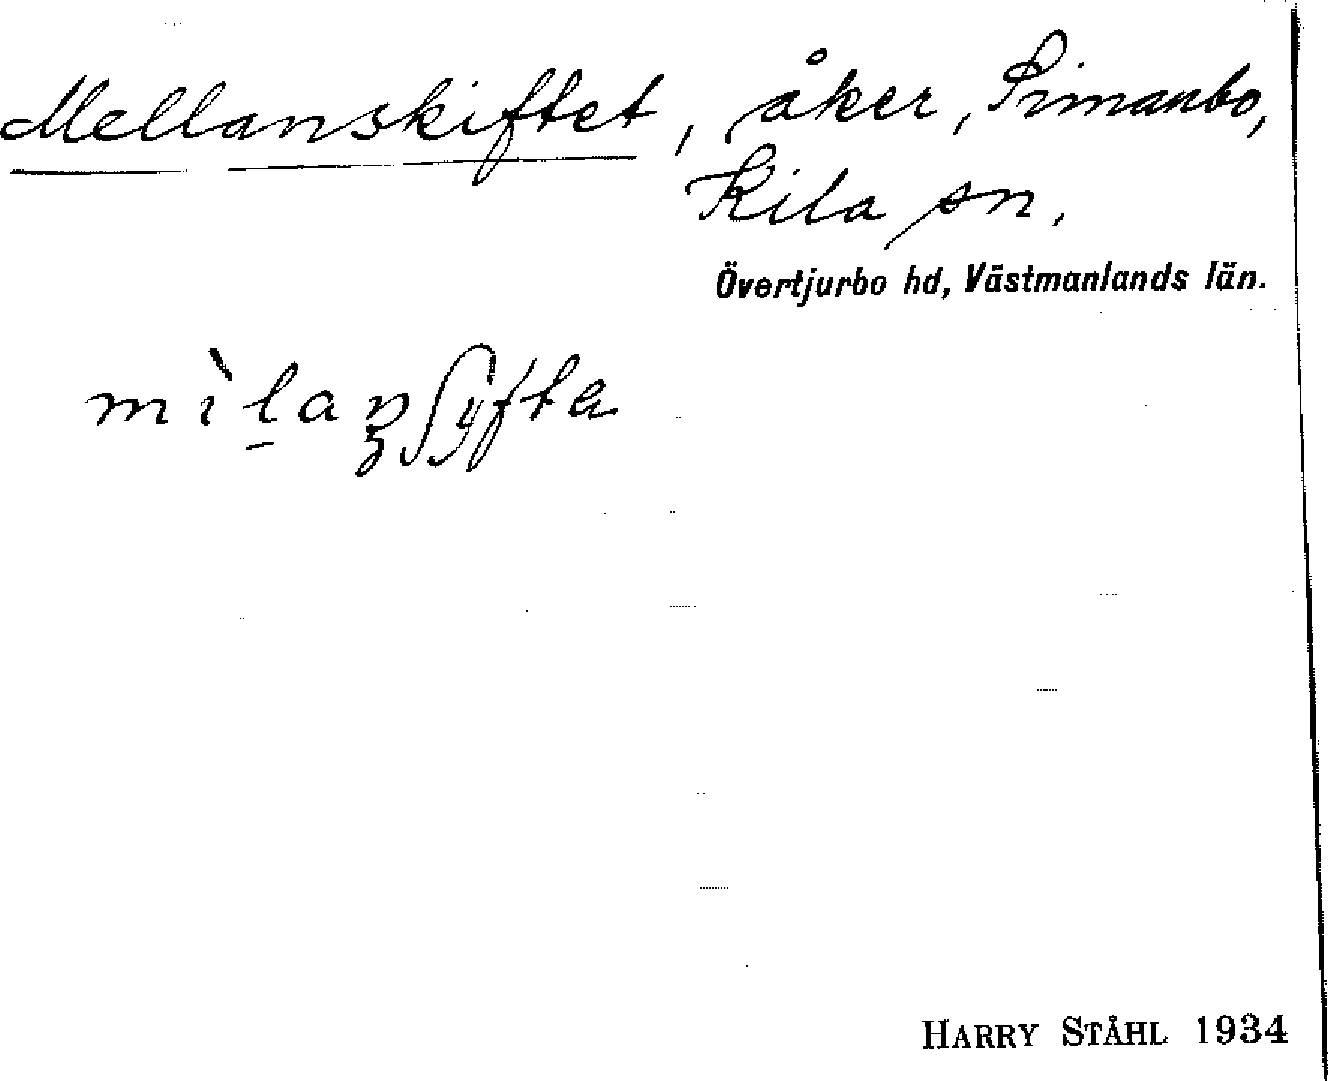 Mellanskiftet, åker, Simanbo,
Kila sn,
Övertjurbo hd, Västmanlands län.
HARRY STÅHL 1934